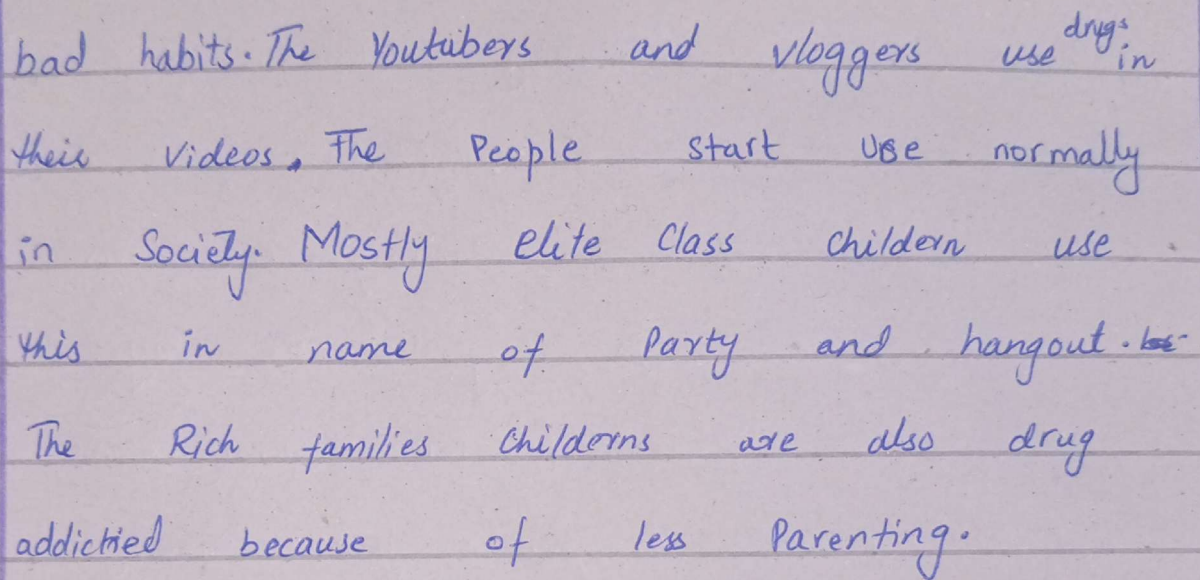 bad habits. The Youtubers and vloggers use drugs in
their videos. The People start use normally
in Society. Mostly elite Class childern use
this in name of Party and hangout.
The Rich families childerns are also drug
addictied because of less Parenting.